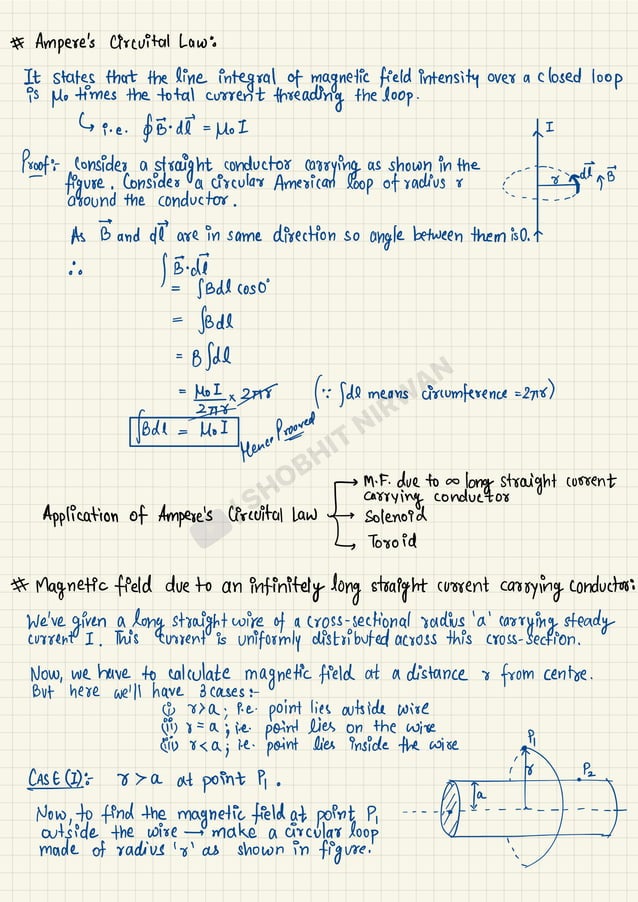 # Ampere's Circuital Law:
It states that the line integral of magnetic field intensity over a closed loop
is μ₀ times the total current threading the loop.
↳ i.e. ∮B⃗·dl⃗ = μ₀I
Proof:- Consider a straight conductor carrying as shown in the
figure. Consider a circular American loop of radius r
around the conductor.
I
r
dl⃗
B⃗
As B⃗ and dl⃗ are in same direction so angle between them is 0.
∴ ∫B⃗·dl⃗
= ∫Bdl cos0°
= ∫Bdl
= B∫dl
= μ₀I/2πr × 2πr (∵ ∫dl means circumference = 2πr)
∫Bdl = μ₀I
Hence Prooved
SHOBHIT NIRWAN
Application of Ampere's Circuital Law
→ M.F. due to ∞ long straight current
carrying conductor
→ Solenoid
→ Toroid
# Magnetic field due to an infinitely long straight current carrying conductor:
We've given a long straight wire of a cross-sectional radius 'a' carrying steady
current I. This current is uniformly distributed across this cross-section.
Now, we have to calculate magnetic field at a distance r from centre.
But here we'll have 3 cases:-
(i) r>a; i.e. point lies outside wire
(ii) r=a; i.e. point lies on the wire
(iii) r<a; i.e. point lies inside the wire
CASE(I):- r>a at point P₁.
Now, to find the magnetic field at point P₁
outside the wire → make a circular loop
made of radius 'r' as shown in figure.
P₁
r
P₂
a